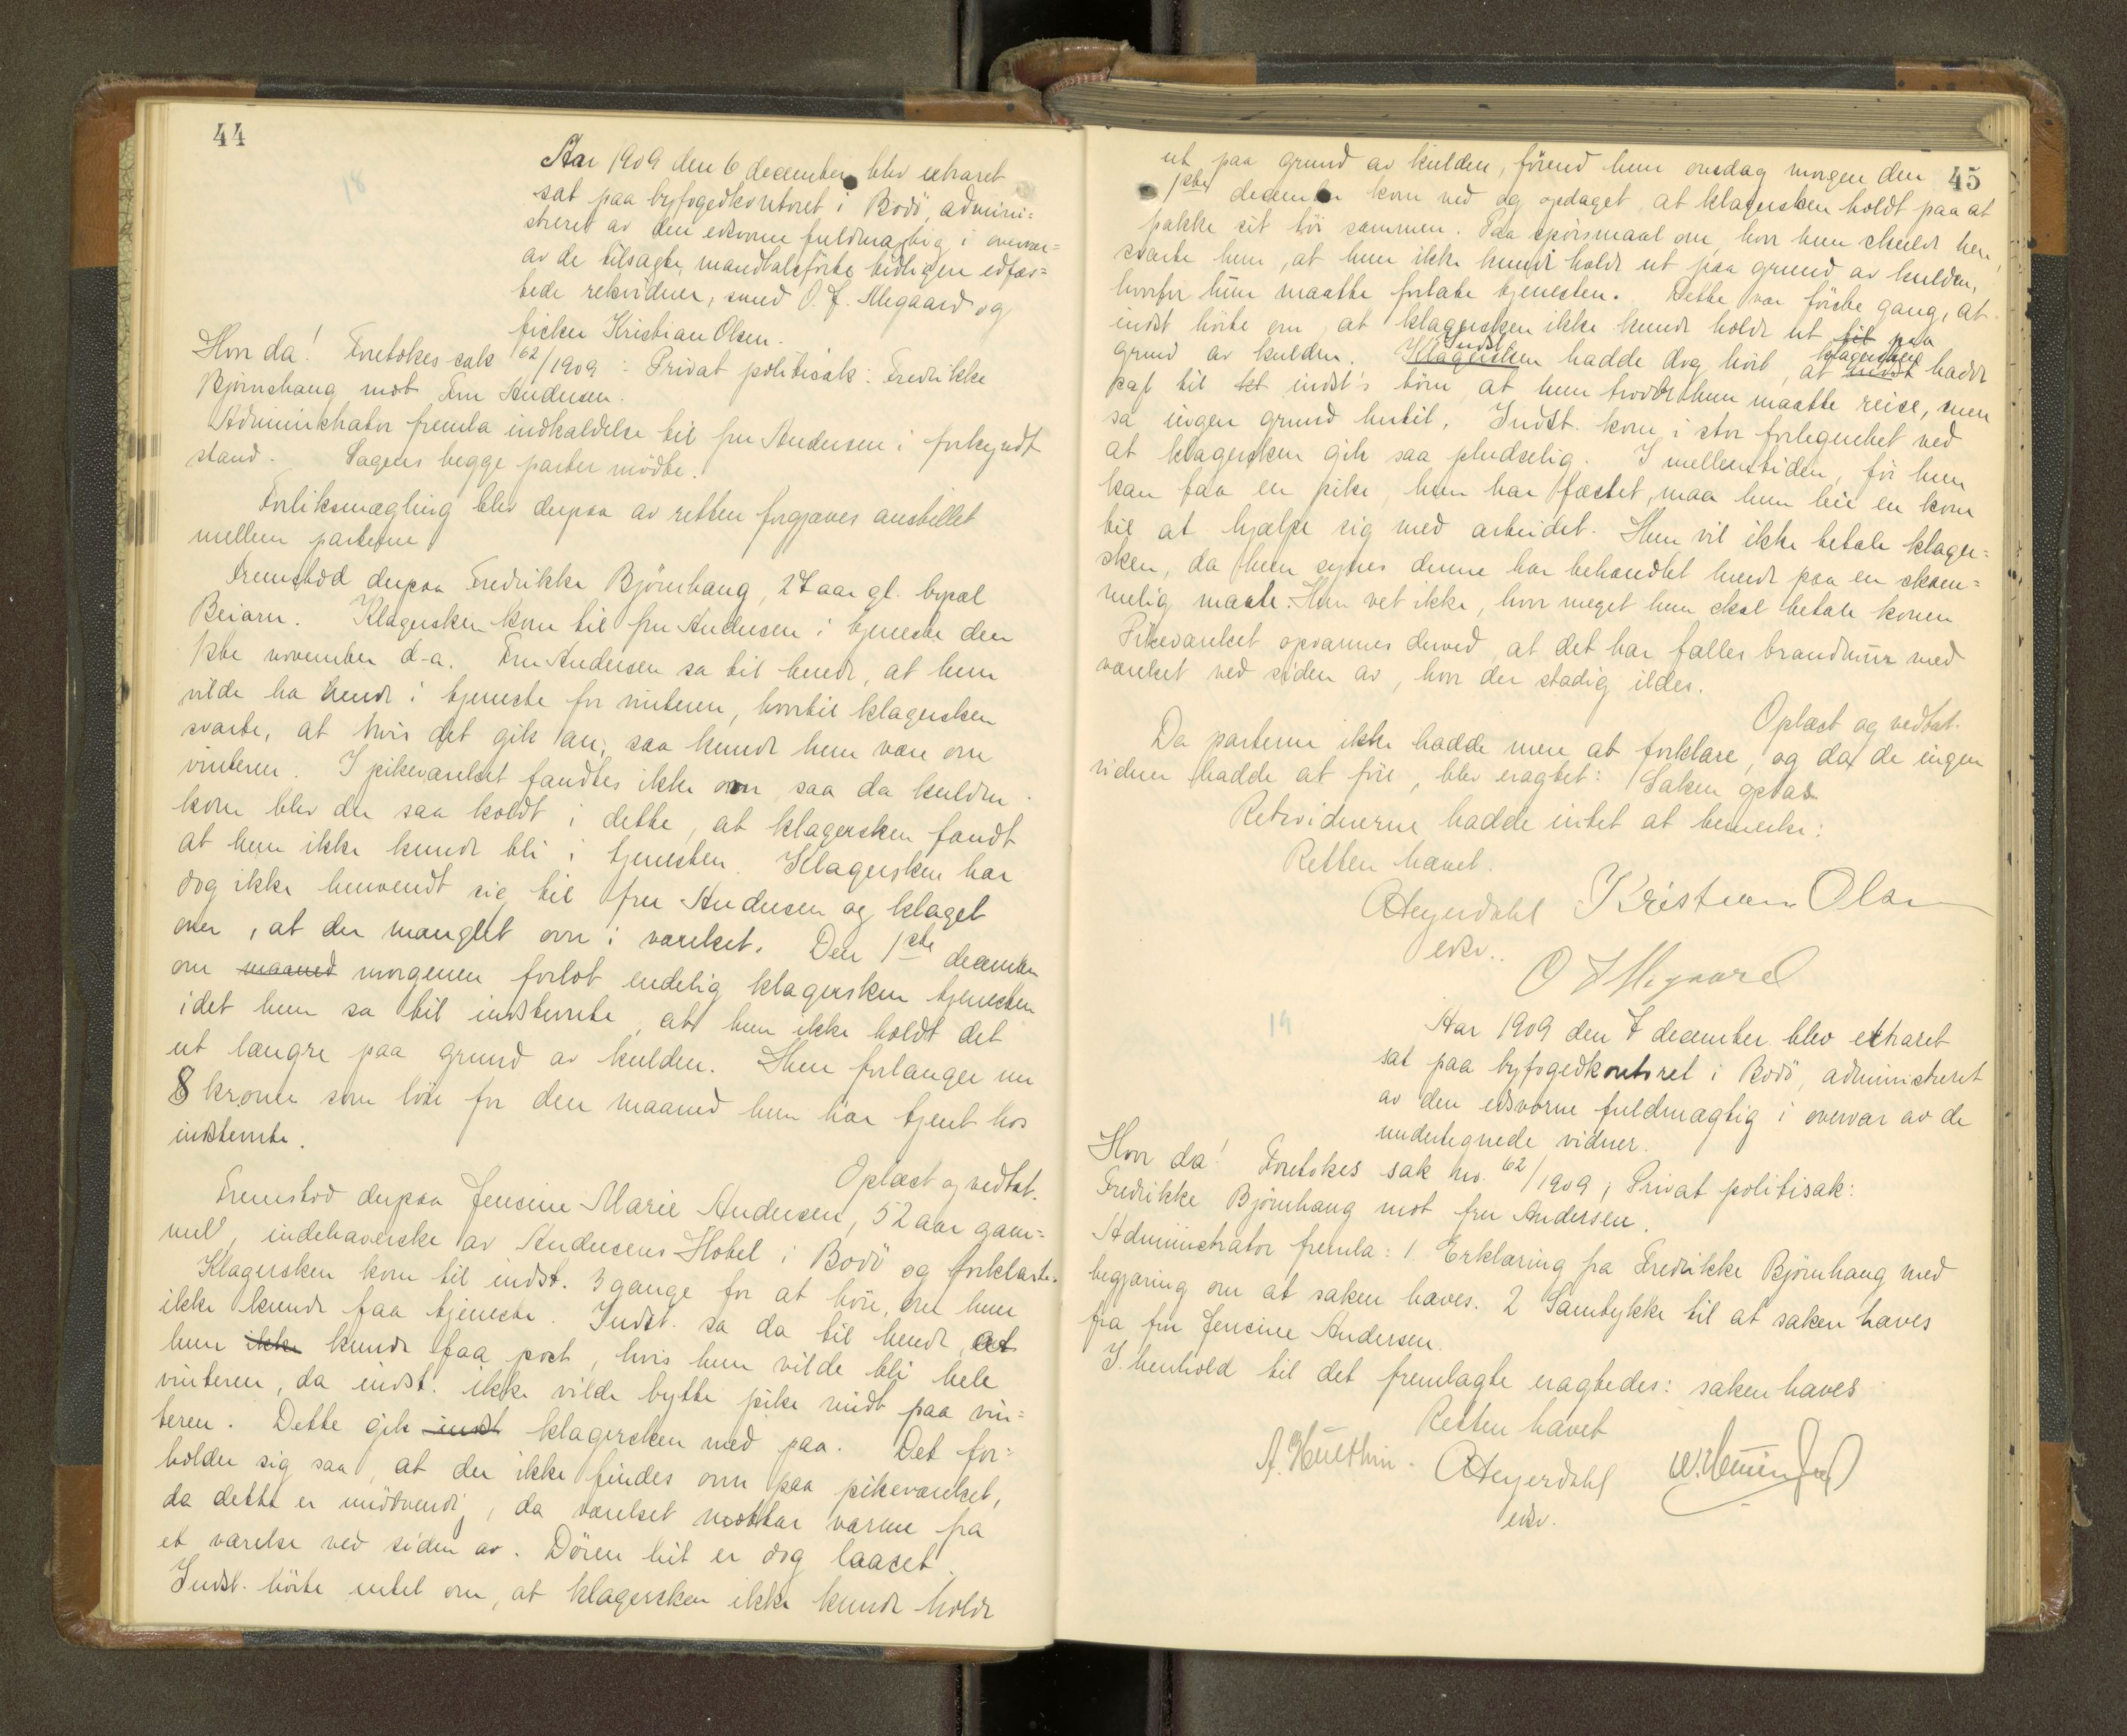 44
18
Aar 1909 den 6 december blev extraret
sat paa byfogedkontoret i Bodö, admini=
streret av den edsvorne fuldmægtig i overvær=
av de tilsagte, mandtalsförte tidligere edfæs=
tede retsvidner, smed O. J. Alegaard og
fisker Kristian Olsen.
Hvor da! Foretokes sak 62/1909: Privat politisak: Fredrikke
Björnhaug mot Fru Andersen.
Administrator fremla indkaldelse til fru Andersen i forkyndt
stand. Sagens begge parter mödte.
Forliksmægling blev derpaa av retten forgjæves anstillet
mellem parterne
Fremstod derpaa Fredrikke Björnhaug, 27 aar gl. bopæl
Beiarn. Klagersken kom til fru Andersen i tjeneste den
1ste november d-a. Fru Andersen sa til hende, at hun
vilde ha hende i tjeneste for vinteren, hvortil klagersken
svarte, at hvis det gik an, saa kunde hun være om
vinteren. I pikeværelset fandtes ikke ovn, saa da kulden
kom blev der saa koldt i dette, at klagersken fandt
at hun ikke kunde bli i tjenesten. Klagersken har
dog ikke henvendt sig til fru Andersen og klaget
over, at der manglet ovn i værelset. Den 1ste december
om maaned morgenen forlot endelig klagersken tjenesten
idet hun sa til indstevnte, at hun ikke holdt det
ut længre paa grund av kulden. Hun forlanger nu
8 kroner som lön for den maaned hun har tjent hos
indstevnte.
Oplæst og vedtat.
Fremstod derpaa Jensine Marie Andersen, 52 aar gam=
mel, indehaverske av Andersens Hotel i Bodö og forklarte.
Klagersken kom til indst. 3 gange for at höre, om hun
ikke kunde faa tjeneste. Indst. sa da til hende, at
hun ikke kunde faa post, hvis hun vilde bli hele
vinteren, da indst. ikke vilde bytte pike midt paa vin=
teren. Dette gik indst klagersken med paa. Det for=
holder sig saa, at der ikke findes ovn paa pikeværelset,
da dette er unödvendig, da værelset mottar varme fra
et værelse ved siden av. Dören hit er dog laaset.
Indst. hörte intet om, at klagersken ikke kunde holde
45
ut paa grund av kulden, förend hun onsdag morgen den
1ste december kom ned og opdaget, at klagersken holdt paa at
pakke sit töi sammen. Paa spörsmaal om, hvor hun skulde hen,
svarte hun, at hun ikke kunde holde ut paa grund av kulden,
hvorfor hun maatte forlate tjenesten. Dette var förste gang, at
indst hörte om, at klagersken ikke kunde holde ut til paa
grund av kulden. Klagersken Indst hadde dog hört, at indst klagersken hadde
sagt til indst's börn, at hun trodde hun maatte reise, men
sa ingen grund hertil. Indst. kom i stor forlegenhet ved
at klagersken gik saa pludselig. I mellemtiden, för hun
kan faa en pike, hun har fæstet, maa hun leie en kone
til at hjælpe sig med arbeidet. Hun vil ikke betale klager=
sken, da hun synes denne har behandlet hende paa en skam=
melig maate. Hun vet ikke, hvor meget hun skal betale konen
Pikeværelset opvarmes derved, at det har fælles brandmur med
værelset ved siden av, hvor der stadig ildes.
Oplæst og vedtat.
Da parterne ikke hadde mere at forklare, og da de ingen
vidner hadde at före, blev eragtet: Saken optas
Retsvidnerne hadde intet at bemerke:
Retten hævet.
A Heyerdahl Kristian Olsen
edsv..
O J Alegaard
19
Aar 1909 den 7 december blev extraret
sat paa byfogedkontoret i Bodö, administreret
av den edsvorne fuldmægtig i overvær av de
undertegnede vidner.
Hvor da! Foretokes sak no. 62/1909; Privat politisak:
Fredrikke Björnhaug mot fru Andersen.
Administrator fremla: 1 Erklæring fra Fredrikke Björnhaug med
begjæring om at saken hæves. 2 Samtykke til at saken hæves
fra fru Jensine Andersen.
I henhold til det fremlagte eragtedes: saken hæves
Retten hævet
A. Hulthin. A Heyerdahl
edsv.